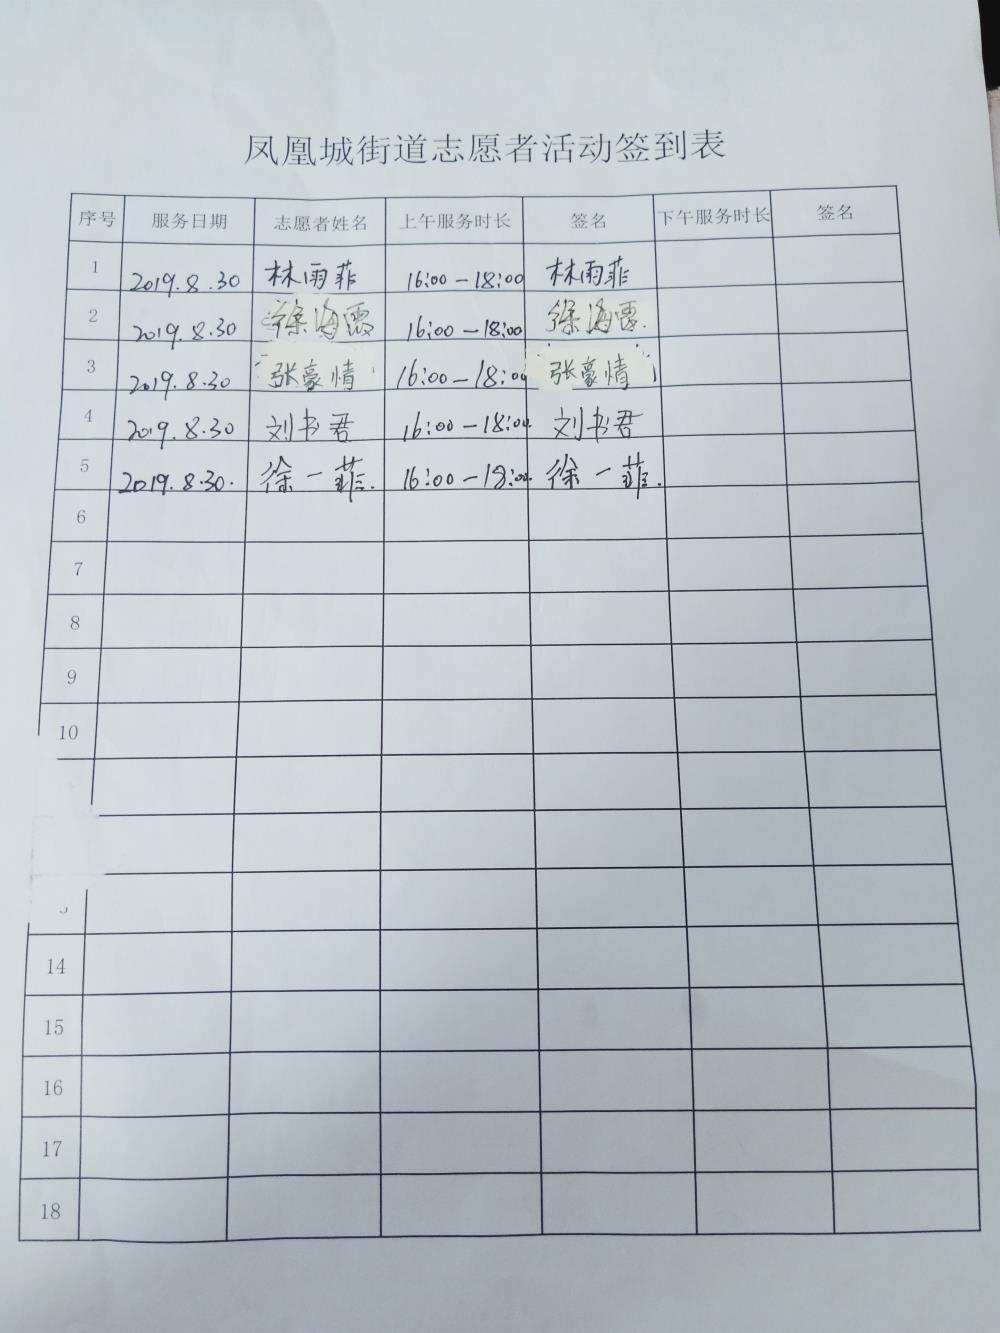 凤凰城街道志愿者活动签到表
序号 服务日期 志愿者姓名 上午服务时长 签名 下午服务时长 签名
1 2019.8.30 林雨菲 16:00-18:00 林雨菲
2 2019.8.30 徐海霞 16:00-18:00 徐海霞.
3 2019.8.30 张豪情 16:00-18:00 张豪情
4 2019.8.30 刘书君 16:00-18:00. 刘书君
5 2019.8.30. 徐一菲. 16:00-18:00. 徐一菲.
6
7
8
9
10
14
15
16
17
18